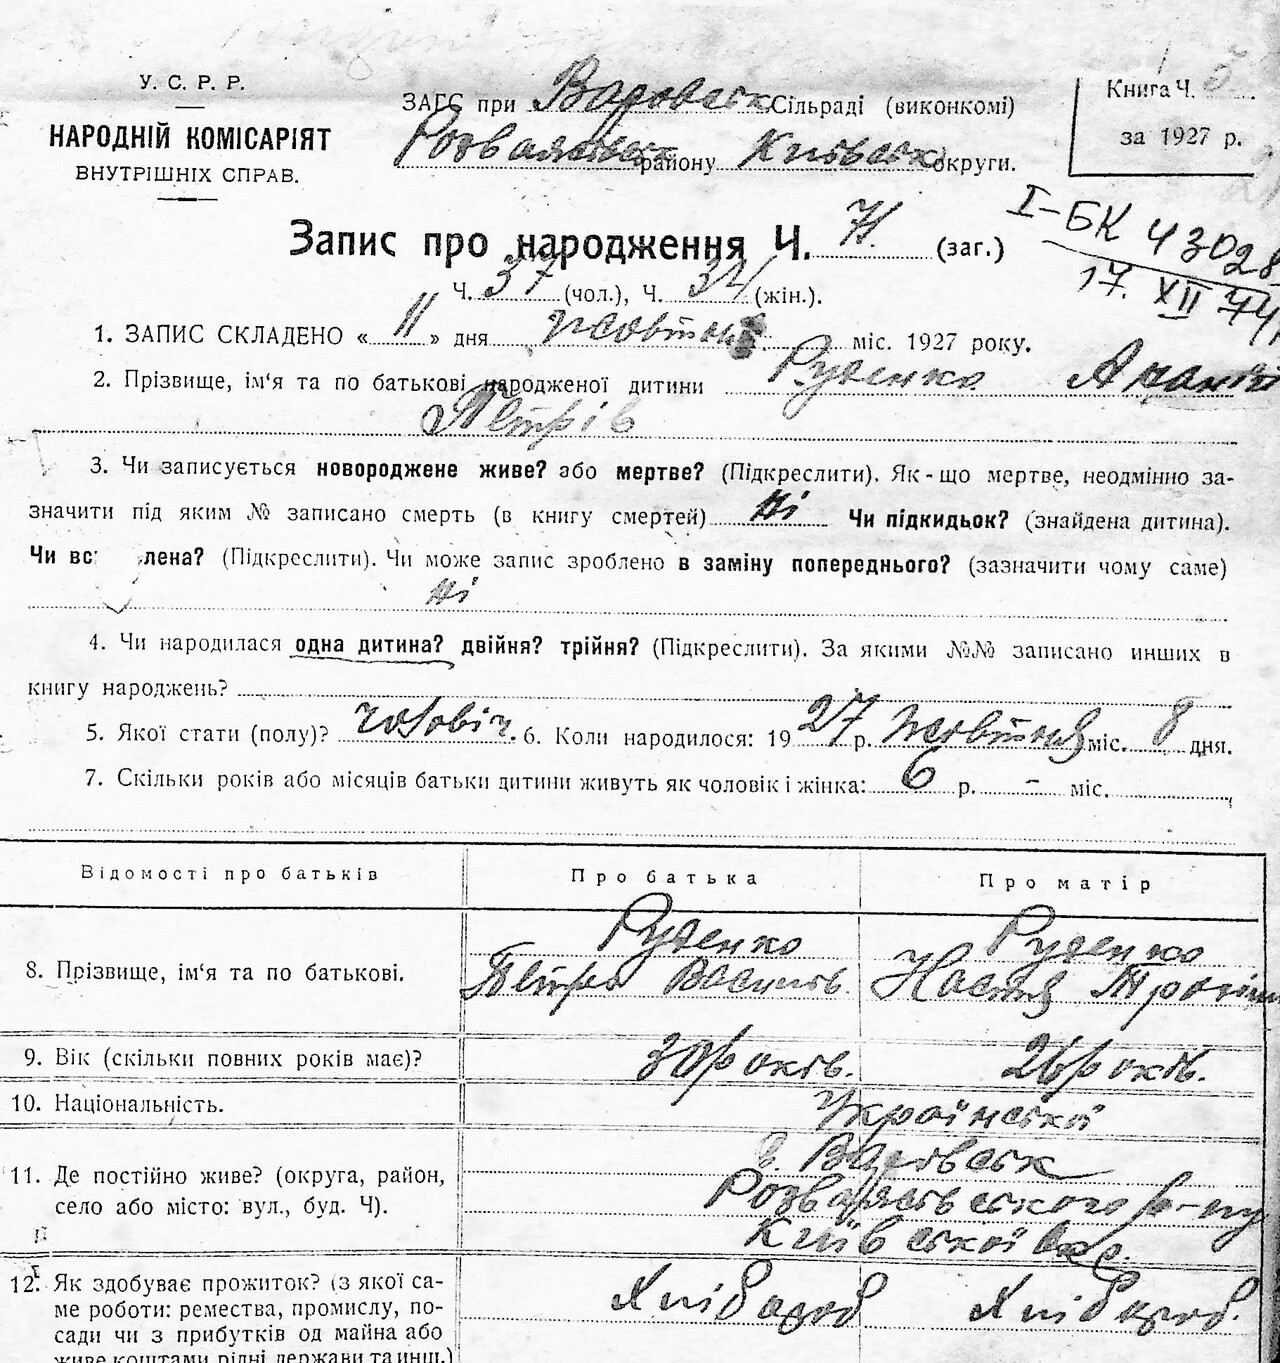 У. С. Р. Р.
НАРОДНІЙ КОМІСАРІЯТ
ВНУТРІШНІХ СПРАВ.
ЗАГС при Варовськ Сільраді (виконкомі)
Розважівськ району Київськ округи.
Книга Ч. 5
за 1927 р.
Запис про народження Ч. 71. (заг.)
Ч. 37 (чол.), Ч. 34 (жін.).
І-БК 43028
17. XII 74
1. ЗАПИС СКЛАДЕНО « 11 » дня жовтня міс. 1927 року.
2. Прізвище, ім'я та по батькові народженої дитини Руденко Ананій
Петрів
3. Чи записується новороджене живе? або мертве? (Підкреслити). Як-що мертве, неодмінно за-
значити під яким № записано смерть (в книгу смертей) Ні Чи підкидьок? (знайдена дитина).
Чи вс лена? (Підкреслити). Чи може запис зроблено в заміну попереднього? (зазначити чому саме)
Ні
4. Чи народилася одна дитина? двійня? трійня? (Підкреслити). За якими №№ записано инших в
книгу народжень?
5. Якої стати (полу)? чоловіч. 6. Коли народилося: 1927 р. Жовтня міс. 8 дня.
7. Скільки років або місяців батьки дитини живуть як чоловік і жінка: 6 р. - міс.
Відомості про батьків Про батька Про матір
8. Прізвище, ім'я та по батькові. Руденко Петро Василів. Руденко Настя
9. Вік (скільки повних років має)? 30 років. 26 років.
10. Національність. Української
11. Де постійно живе? (округа, район,
село або місто: вул., буд. Ч).
с. Варовськ
Розважівського р-ну
Київської окр.
12. Як здобуває прожиток? (з якої са-
ме роботи: ремества, промислу, по-
сади чи з прибутків од майна або
живе коштами рідні держави та инш.)
Хлібороб Хлібороб.